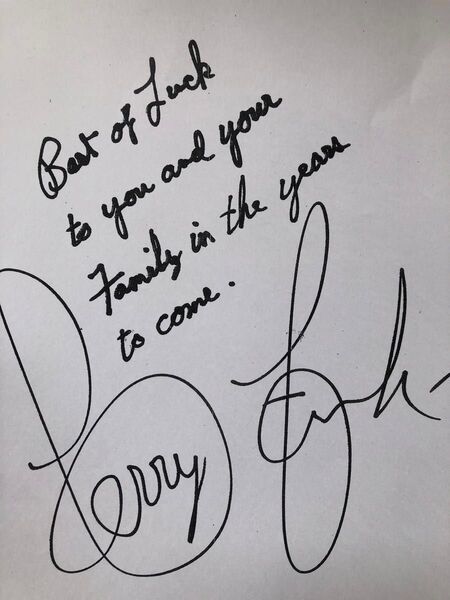 Best of Luck
to you and your
Family in the years
to come.
Perry